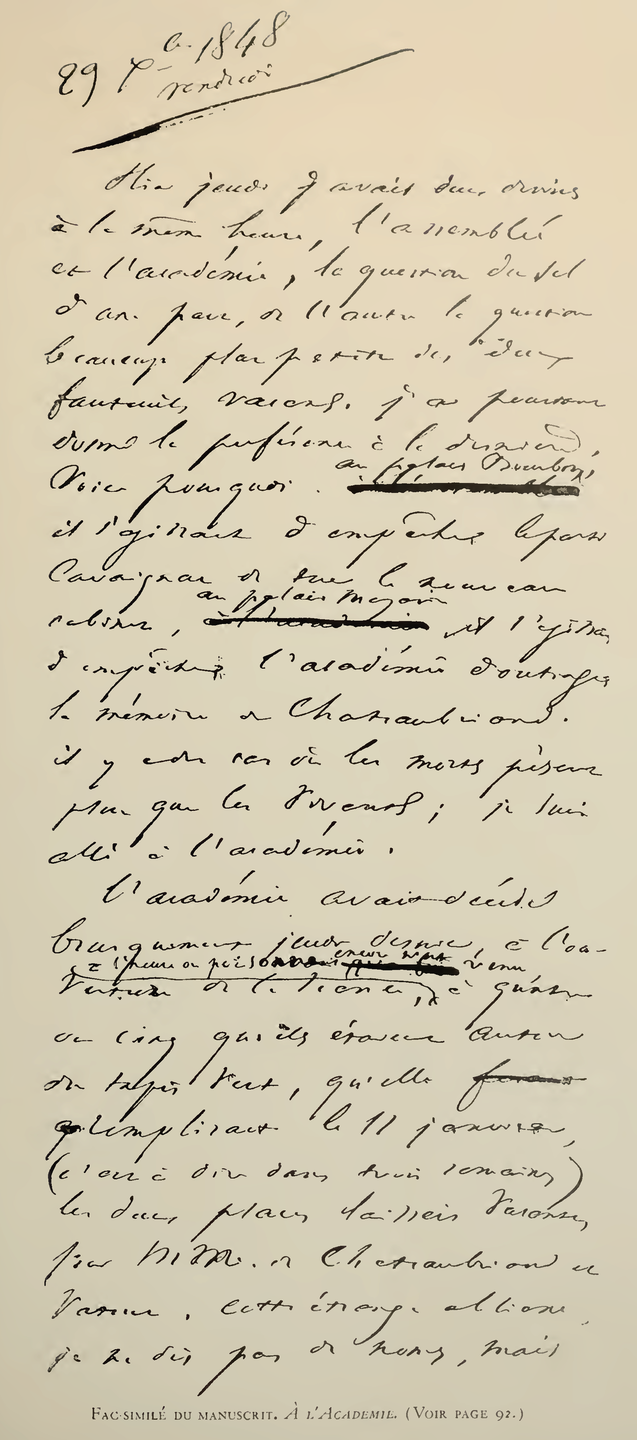 29 Xbre 1848
vendredi
Hier jeudi j'avais deux devoirs
à la même heure, l'assemblée
et l'académie, la question du sel
d'une part, de l'autre la question
beaucoup plus petite des deux
fauteuils vacants. j'ai pourtant
donné la préférence à la dernière.
au palais Bourbon,
Voici pourquoi :
il s'agissait d'empêcher le parti
Cavaignac de tuer le nouveau
au palais Mazarin
cabinet, il s'agissait
d'empêcher l'académie d'outrager
la mémoire de Chateaubriand.
il y a des cas où les morts pèsent
plus que les vivants ; je suis
allé à l'académie.
l'académie avait décidé
brusquement jeudi dernier, à l'ou-
à l'heure où personne n'est encore venu
verture de la séance, à quatre
ou cinq qu'ils étaient autour
du tapis vert, qu'elle
remplirait le 11 janvier,
(c'est à dire dans trois semaines)
les deux places laissées vacantes
par MM. de Chateaubriand et
Vatout. cette étrange alliance,
je ne dis pas de noms, mais
FAC-SIMILÉ DU MANUSCRIT. À L'ACADEMIE. (VOIR PAGE 92.)